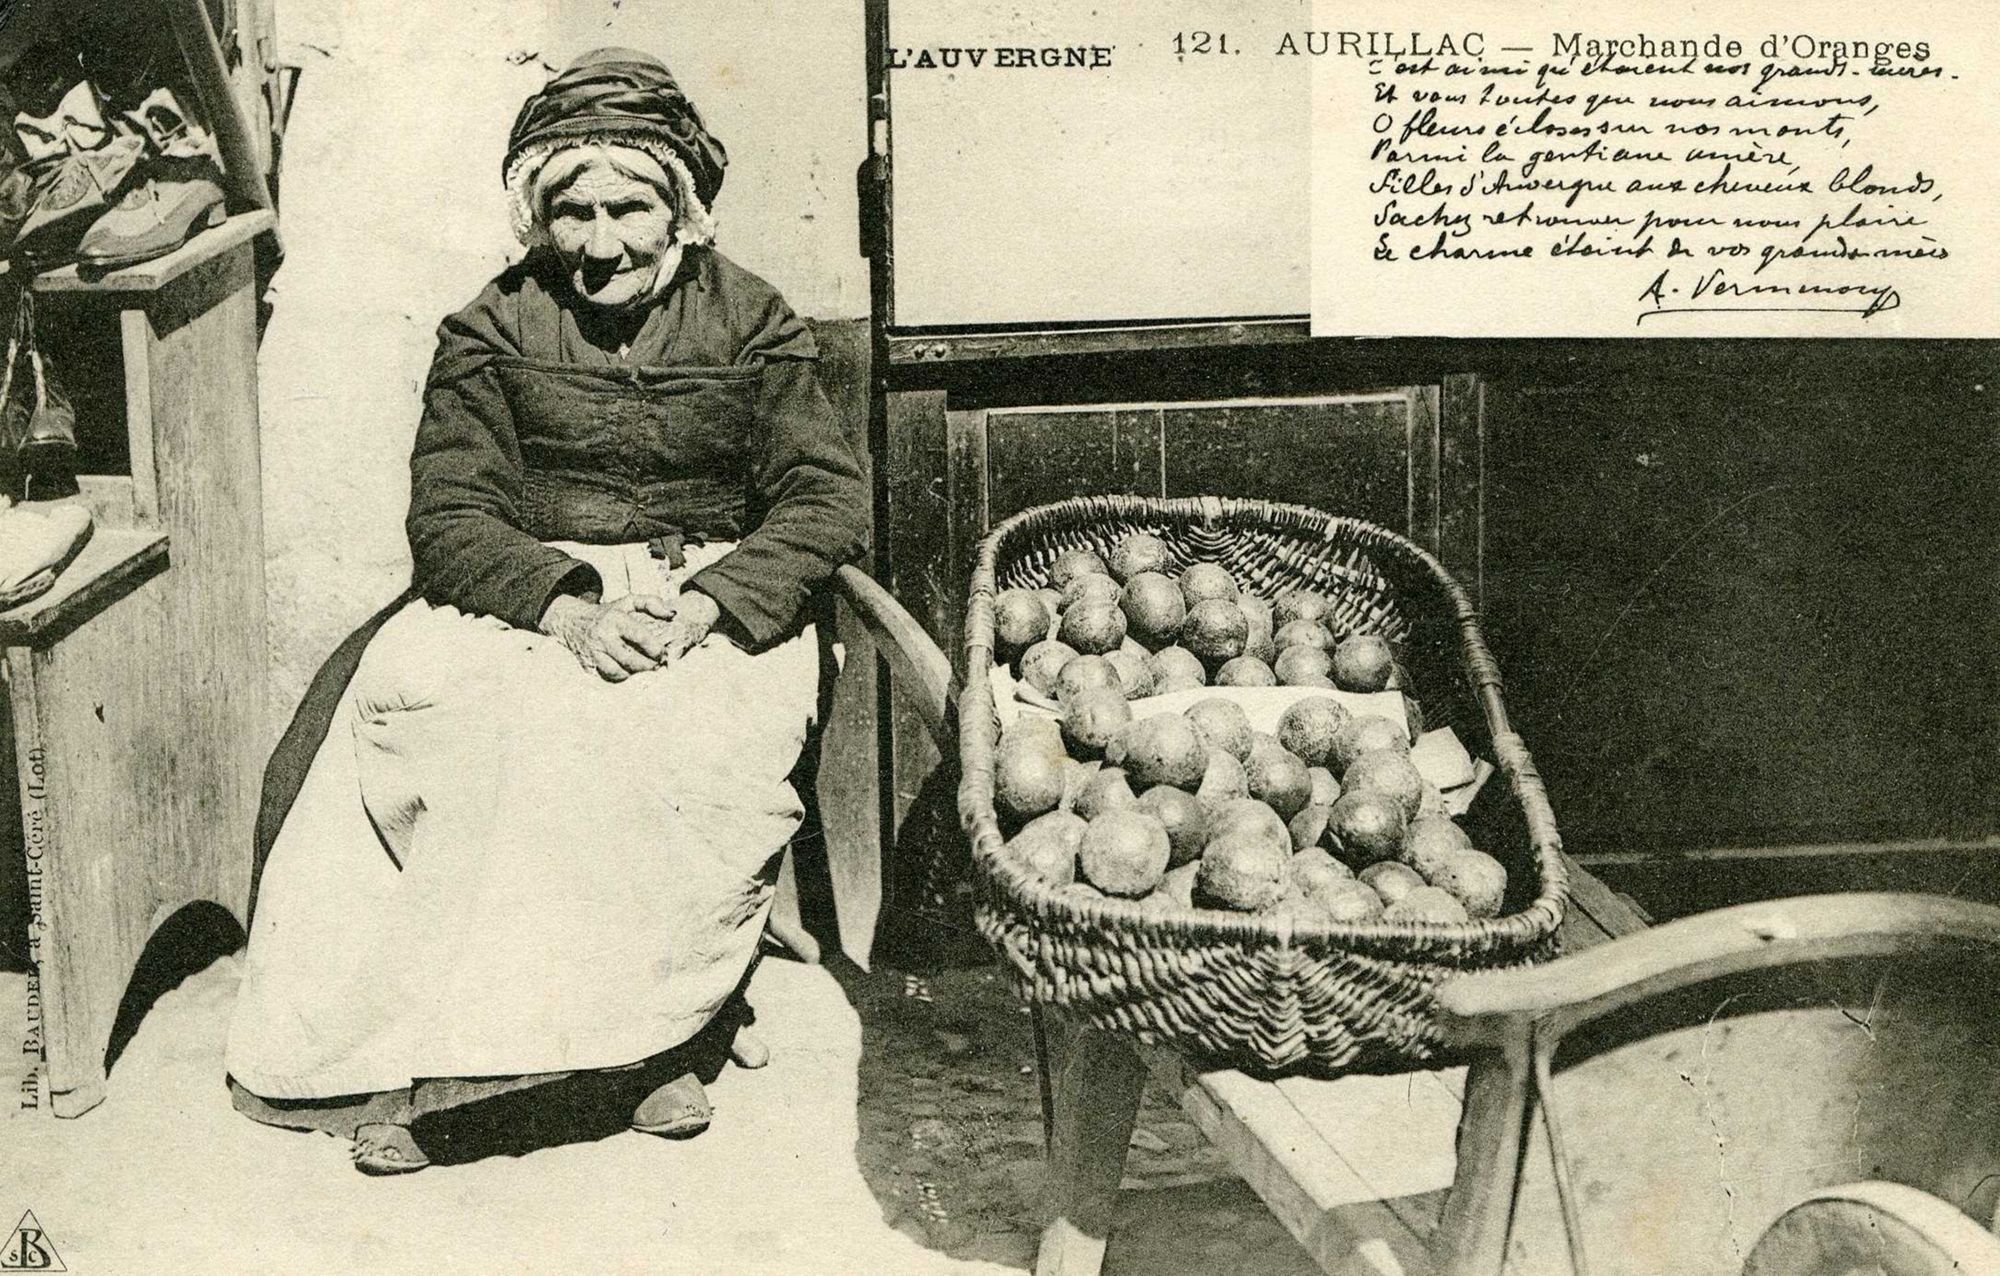 L'AUVERGNE
121. AURILLAC — Marchande d'Oranges
C'est ainsi qu'étaient nos grands-mères.
Et vous toutes que nous aimons,
O fleurs écloses sur nos monts,
Parmi la gentiane amère,
Filles d'Auvergne aux cheveux blonds,
Sachez retrouver pour nous plaire
Le charme éteint de vos grands-mères
A. Vermenouze
Lib. BAUDEL, à Saint-Céré (Lot)
B
S C